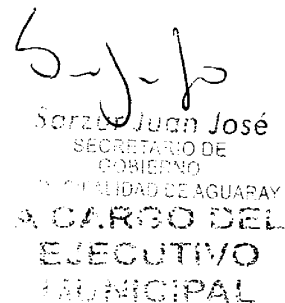 Sarzur Juan José
SECRETARIO DE
GOBIERNO
MUNICIPALIDAD DE AGUARAY
A CARGO DEL
EJECUTIVO
MUNICIPAL